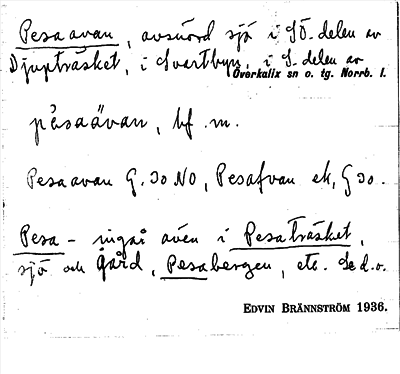 Pesaavan, avsnörd sjö i SÖ. delen av
Djupträsket, i Svartbyn, i S. delen av
Överkalix sn o. tg. Norrb. l.
pèsaävan, bf. m.
Pesaavan G. 30 NO, Pesafvan ek, G 30.
Pesa - ingår även i Pesaträsket,
sjö och gård, Pesabergen, etc. Se d.o.
EDVIN BRÄNNSTRÖM 1936.